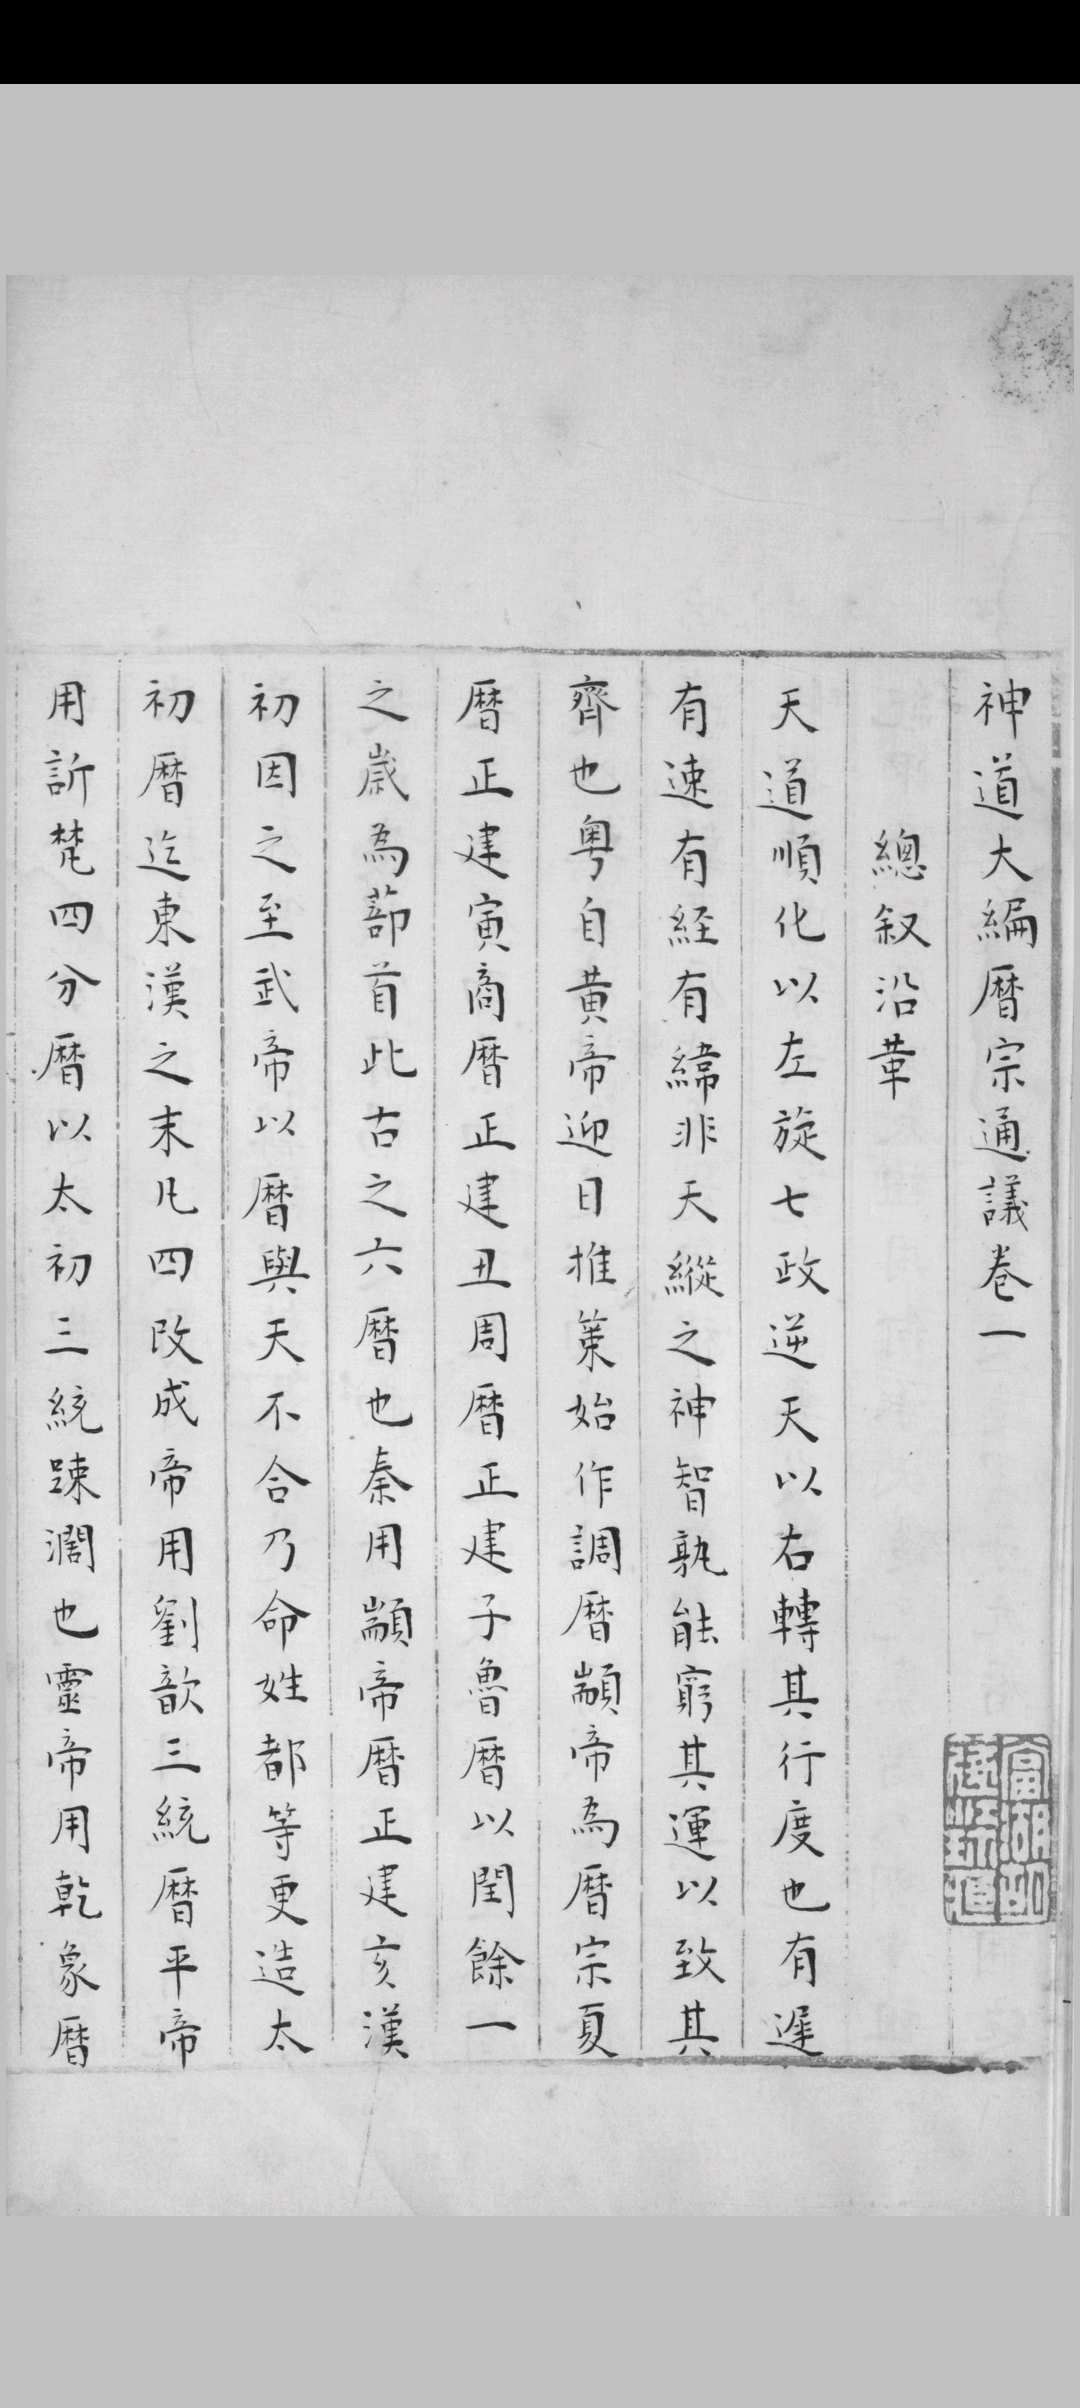 神道大編曆宗通議卷一
總叙沿革
天道順化以左旋七政逆天以右轉其行度也有遲
有速有経有緯非天縱之神智孰能窮其運以致其
齊也粤自黄帝迎日推策始作調曆顓帝為曆宗夏
曆正建寅商曆正建丑周曆正建子魯曆以閏餘一
之歲為蔀首此古之六曆也秦用顓帝曆正建亥漢
初因之至武帝以曆與天不合乃命姓都等更造太
初曆迄東漢之末凡四改成帝用劉歆三統曆平帝
用訢梵四分曆以太初三統踈濶也靈帝用乾象曆